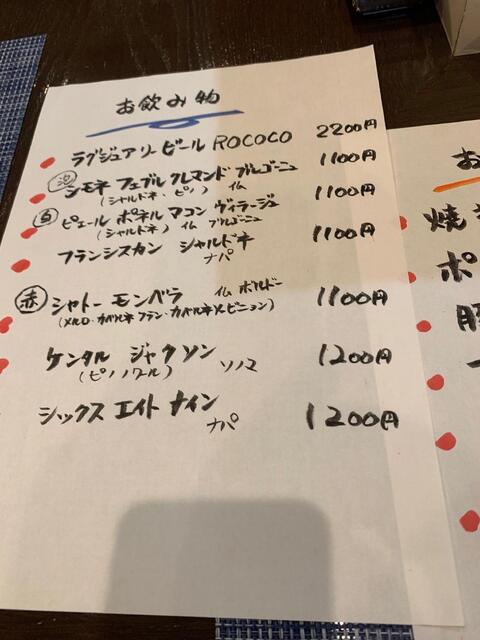 お飲み物
ラグジュアリービール ROCOCO 2200円
泡 シモネ フェブル クレマンド ブルゴーニュ 1100円
(シャルドネ・ピノ) イム
白 ピエール ポネル マコン ヴィラージュ 1100円
(シャルドネ) イム ブルゴーニュ
フランシスカン シャルドネ 1100円
ナパ
赤 シャトー モンペラ イム ボルドー 1100円
(メルロ・カベルネフラン・カベルネソービニョン)
ケンダル ジャクソン ソノマ 1200円
(ピノノワール)
シックス エイト ナイン 1200円
ナパ
お
焼き
ポ
豚